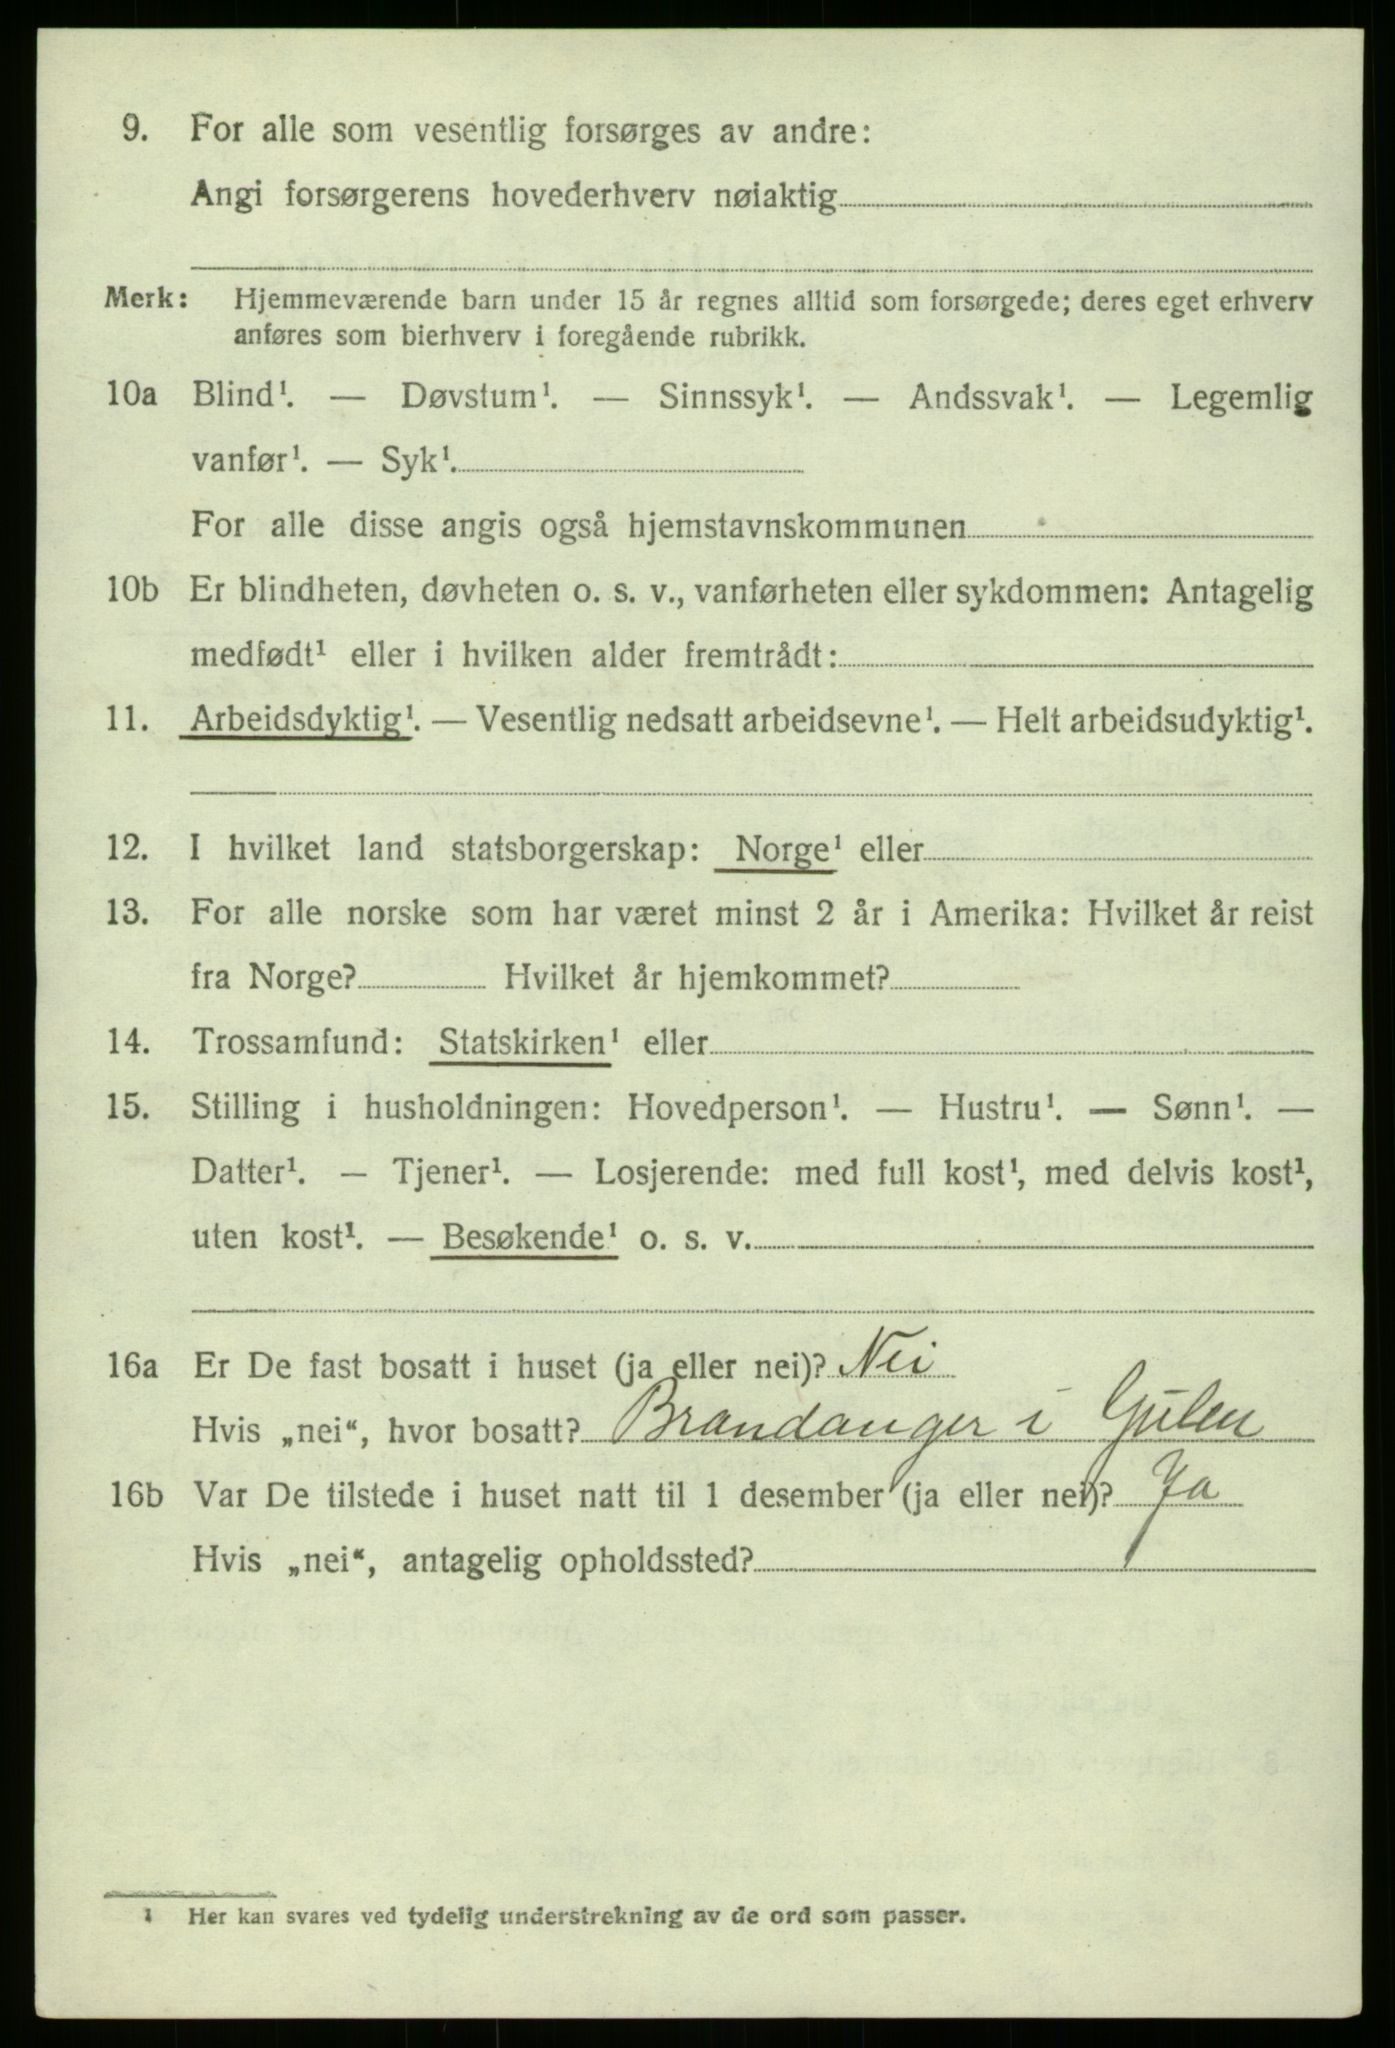 9. For alle som vesentlig forsørges av andre:
Angi forsørgerens hovederhverv nøiaktig
Merk: Hjemmeværende barn under 15 år regnes alltid som forsørgede; deres eget erhverv
anføres som bierhverv i foregående rubrikk.
10a Blind¹. — Døvstum¹. — Sinnssyk¹. — Andssvak¹. — Legemlig
vanfør¹. — Syk¹.
For alle disse angis også hjemstavnskommunen
10b Er blindheten, døvheten o. s. v., vanførheten eller sykdommen: Antagelig
medfødt¹ eller i hvilken alder fremtrådt:
11. Arbeidsdyktig¹. — Vesentlig nedsatt arbeidsevne¹. — Helt arbeidsudyktig¹.
12. I hvilket land statsborgerskap: Norge¹ eller
13. For alle norske som har været minst 2 år i Amerika: Hvilket år reist
fra Norge? Hvilket år hjemkommet?
14. Trossamfund: Statskirken¹ eller
15. Stilling i husholdningen: Hovedperson¹. — Hustru¹. — Sønn¹. —
Datter¹. — Tjener¹. — Losjerende: med full kost¹, med delvis kost¹,
uten kost¹. — Besøkende¹ o. s. v.
16a Er De fast bosatt i huset (ja eller nei)? Nei
Hvis „nei“, hvor bosatt? Brandanger i Gulen
16b Var De tilstede i huset natt til 1 desember (ja eller nei)? Ja
Hvis „nei“, antagelig opholdssted?
1 Her kan svares ved tydelig understrekning av de ord som passer.